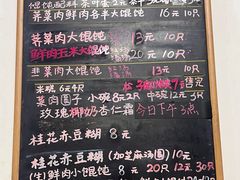 荠菜肉鲜肉各半大馄饨 16元 10只
荠菜肉大馄饨 13元 10只
鲜肉玉米大馄饨 20元 10只
韭菜肉大馄饨 13元 10只
菜肉圆子 小碗8元2只 中碗12元3只
玫瑰椰奶杏仁霜 今日下午3点
桂花赤豆糊 8元
桂花赤豆糊(加芝麻汤圆)10元
(生)鲜肉小馄饨 8元20只 12元30只